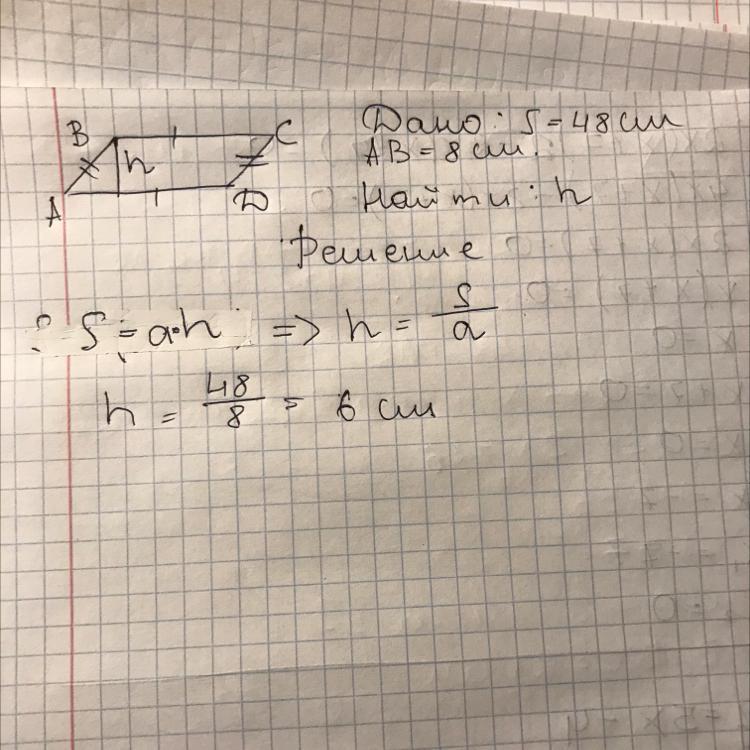 B h C
A D
Дано: S = 48 см
AB = 8 см.
Найти: h
Решение
S = a·h => h = S/a
h = 48/8 = 6 см